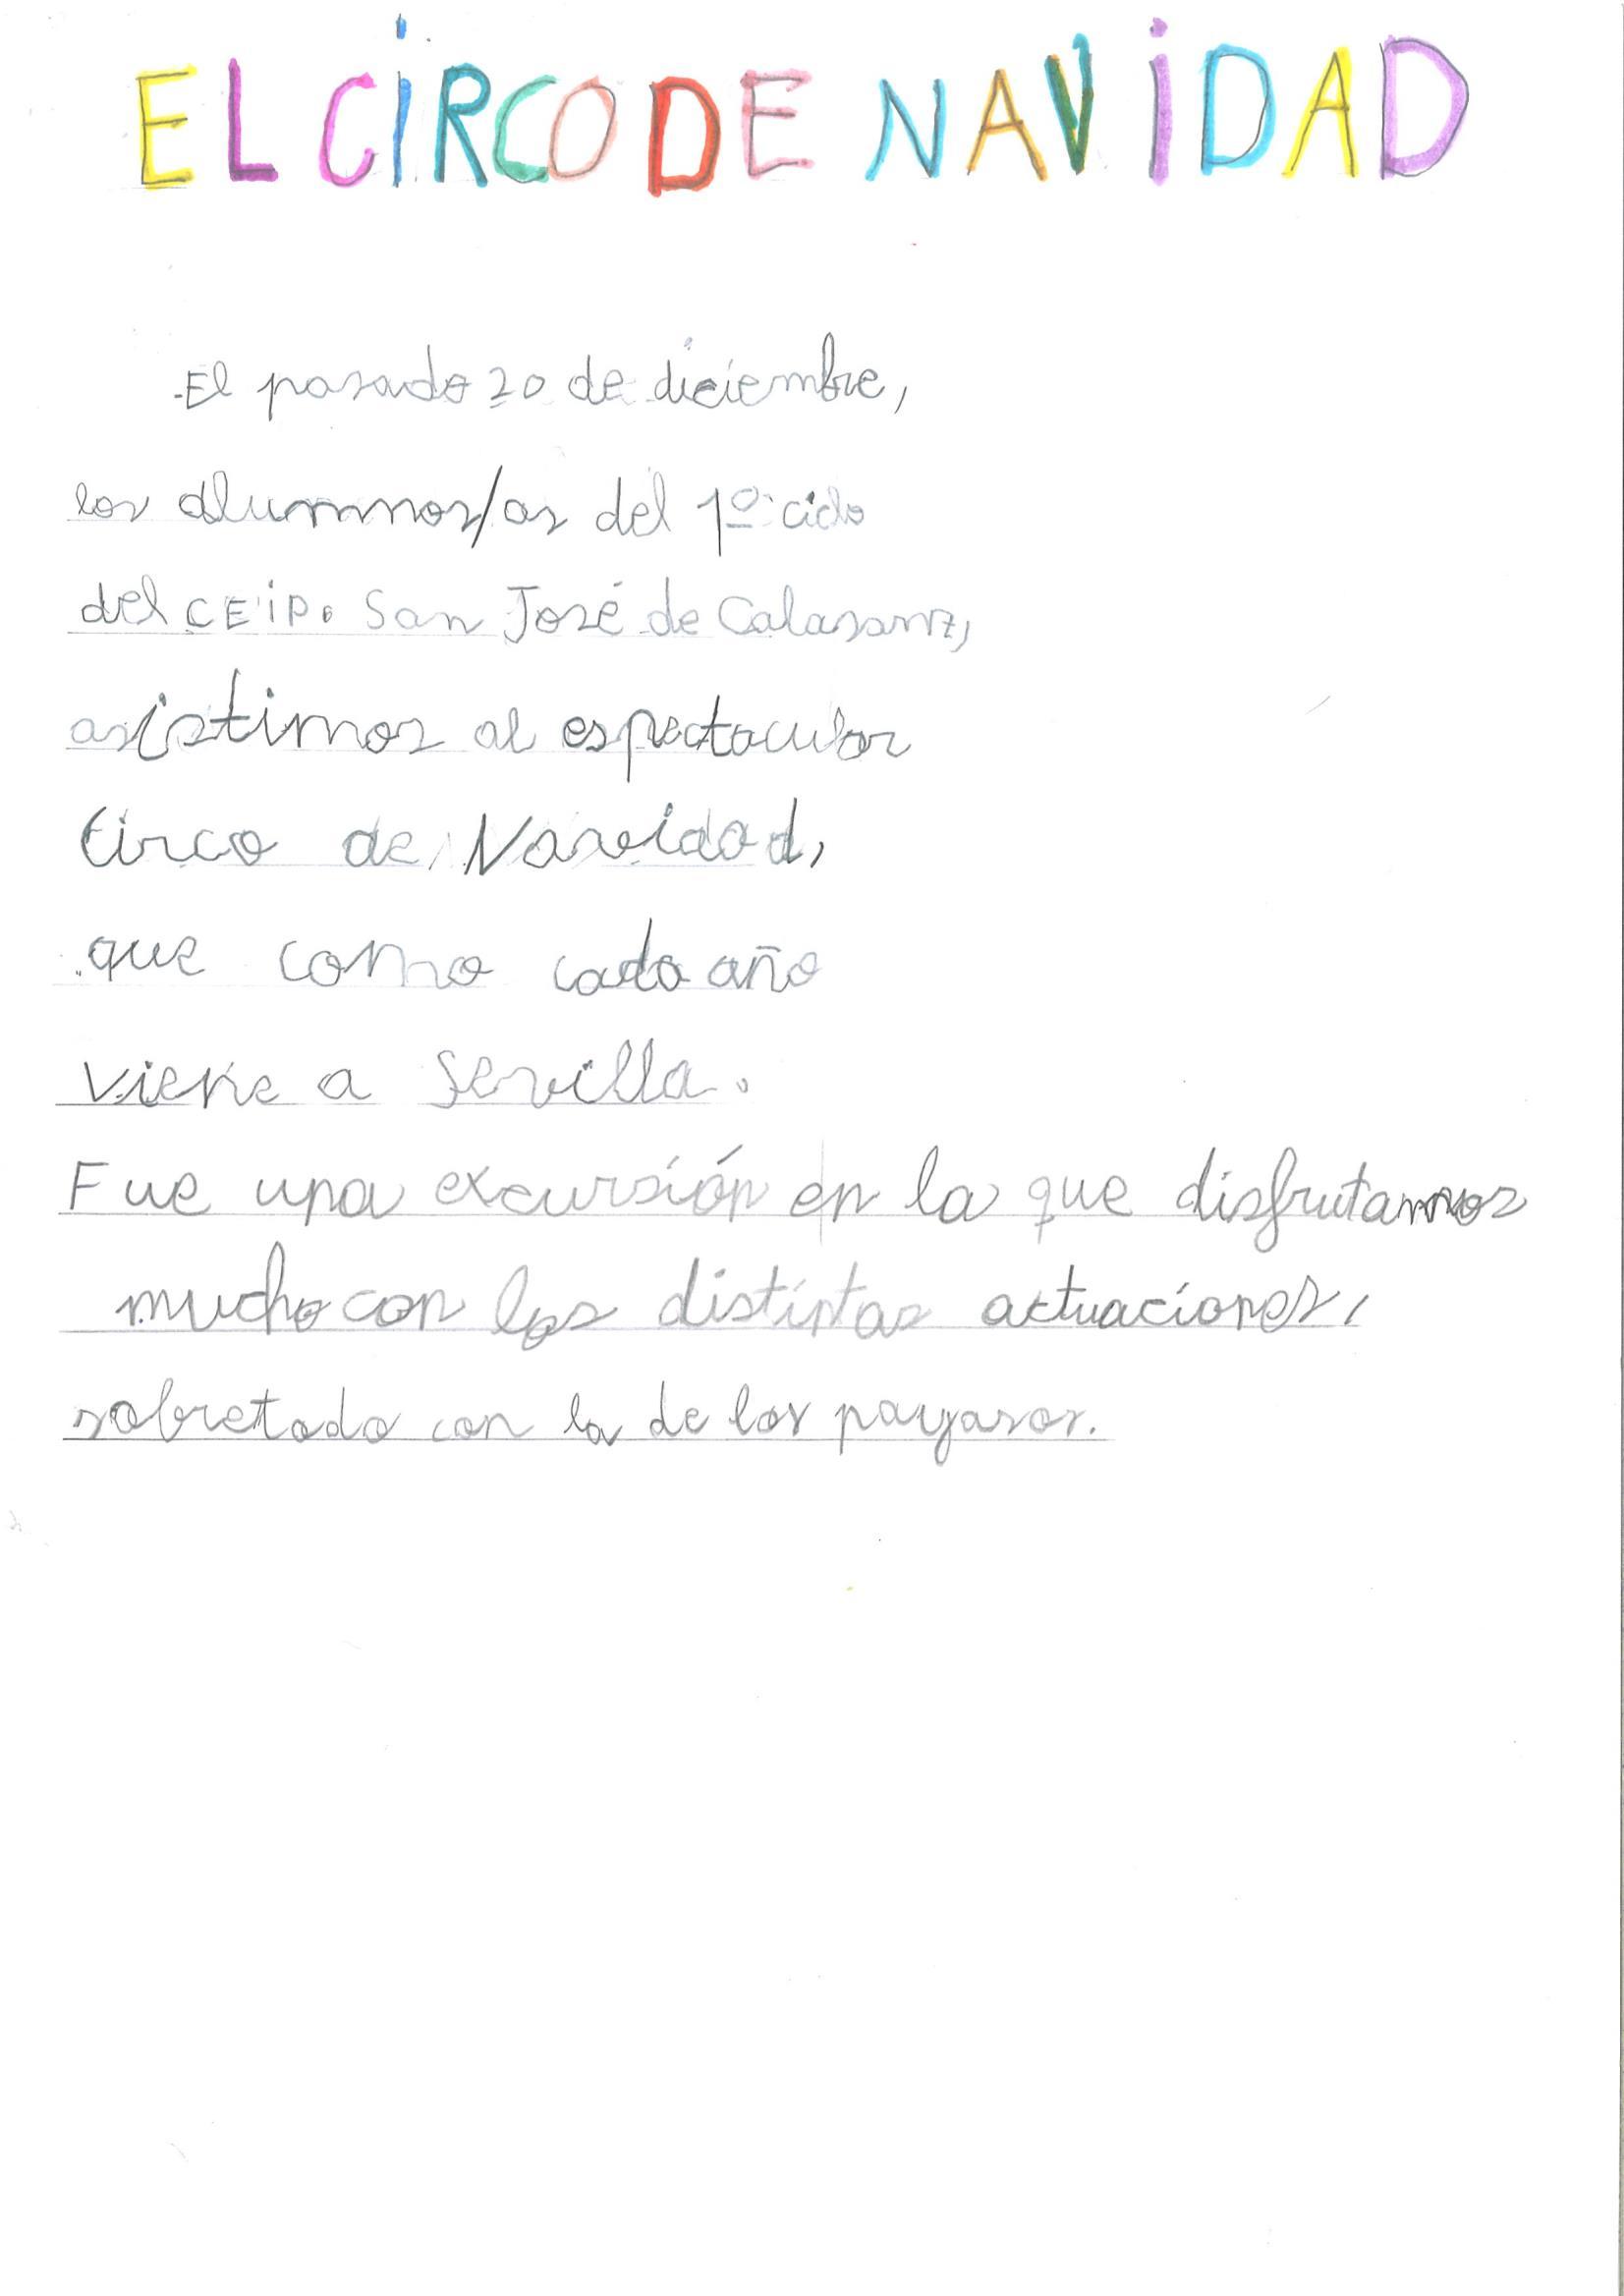 EL CIRCO DE NAVIDAD
El pasado 20 de diciembre,
los alumnos/as del 1º ciclo
del CEiP. San José de Calasanz,
asistimos al espectacular
Circo de Navidad,
que como cada año
viene a Sevilla.
Fue una excursión en la que disfrutamos
mucho con las distintas actuaciones,
sobretodo con la de los payasos.